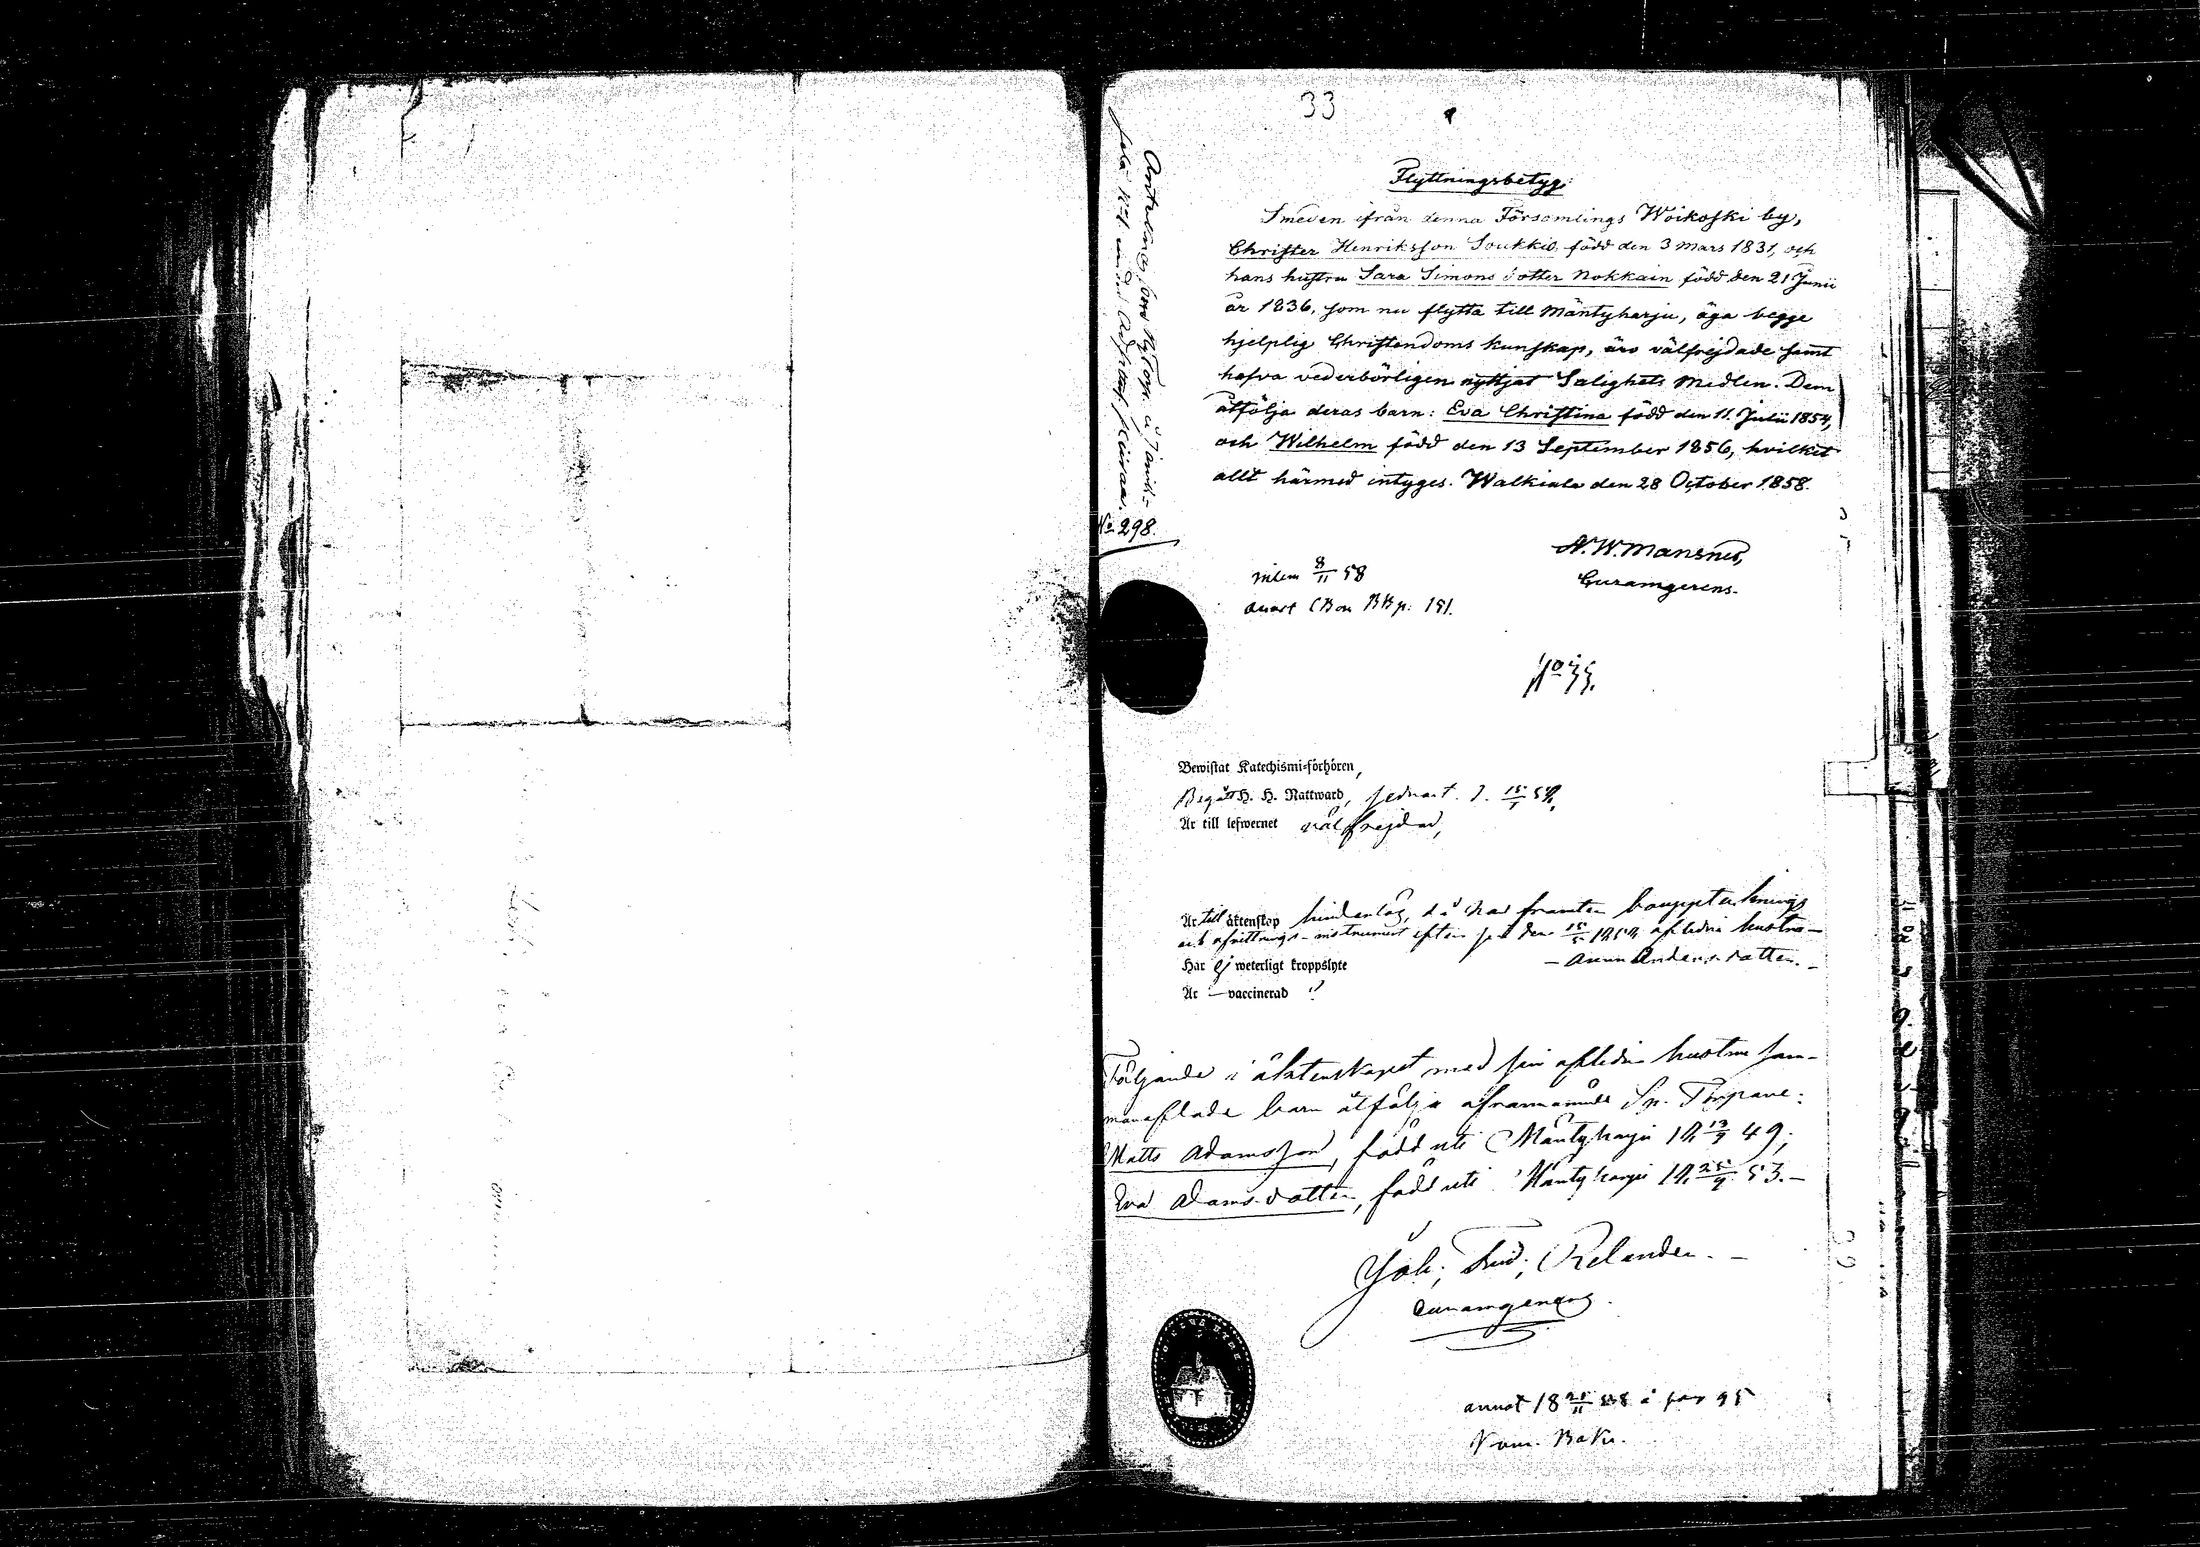 33
Flyttningsbetyg:
Smeden ifrån denna Församlings Woikoski by,
Christer Henriksson Soukkio, född den 3 mars 1831, och
hans hustru Sara Simons dotter Nokkain född den 21 Junii
år 1836, som nu flytta till Mäntyharju, äga begge
hjelplig Christendoms kunskap, äro välfrejdade samt
hafva vederbörligen nyttjat Salighets Medlen. Dem
åtfölja deras barn: Eva Christina född den 11. Julii 1854,
och Wilhelm född den 13 September 1856, hvilket
allt härmed intyges. Walkiala den 28 October 1858.
No 298.
N. W. Mansner,
Curamgerens.
8/11 58
BKp. 151.
No 33.
Bewistat Katechismi-förhören,
Begått H. H. Nattward, sednast d. 58,
Är till lefwernet välfrejdad,
Är till äktenskap hinderlös, då han framter bouppteknings
och afvittrings-instrument efter sin den aflidna hustru
Anna Andersdotter.
Har ej weterligt kroppslyte
Är vaccinerad
Följande i äktenskapet med sin aflidna hustru sam-
manaflade barn åtfölja ofvannämnde
Matts Adamsson, född uti Mäntyharju 18 13/9 49;
Eva Adamsdotter, född uti Mäntyharju 18 25/9 53.
Joh; Fred; Relander.
Curamgerens
annot 18 58 å pag 95